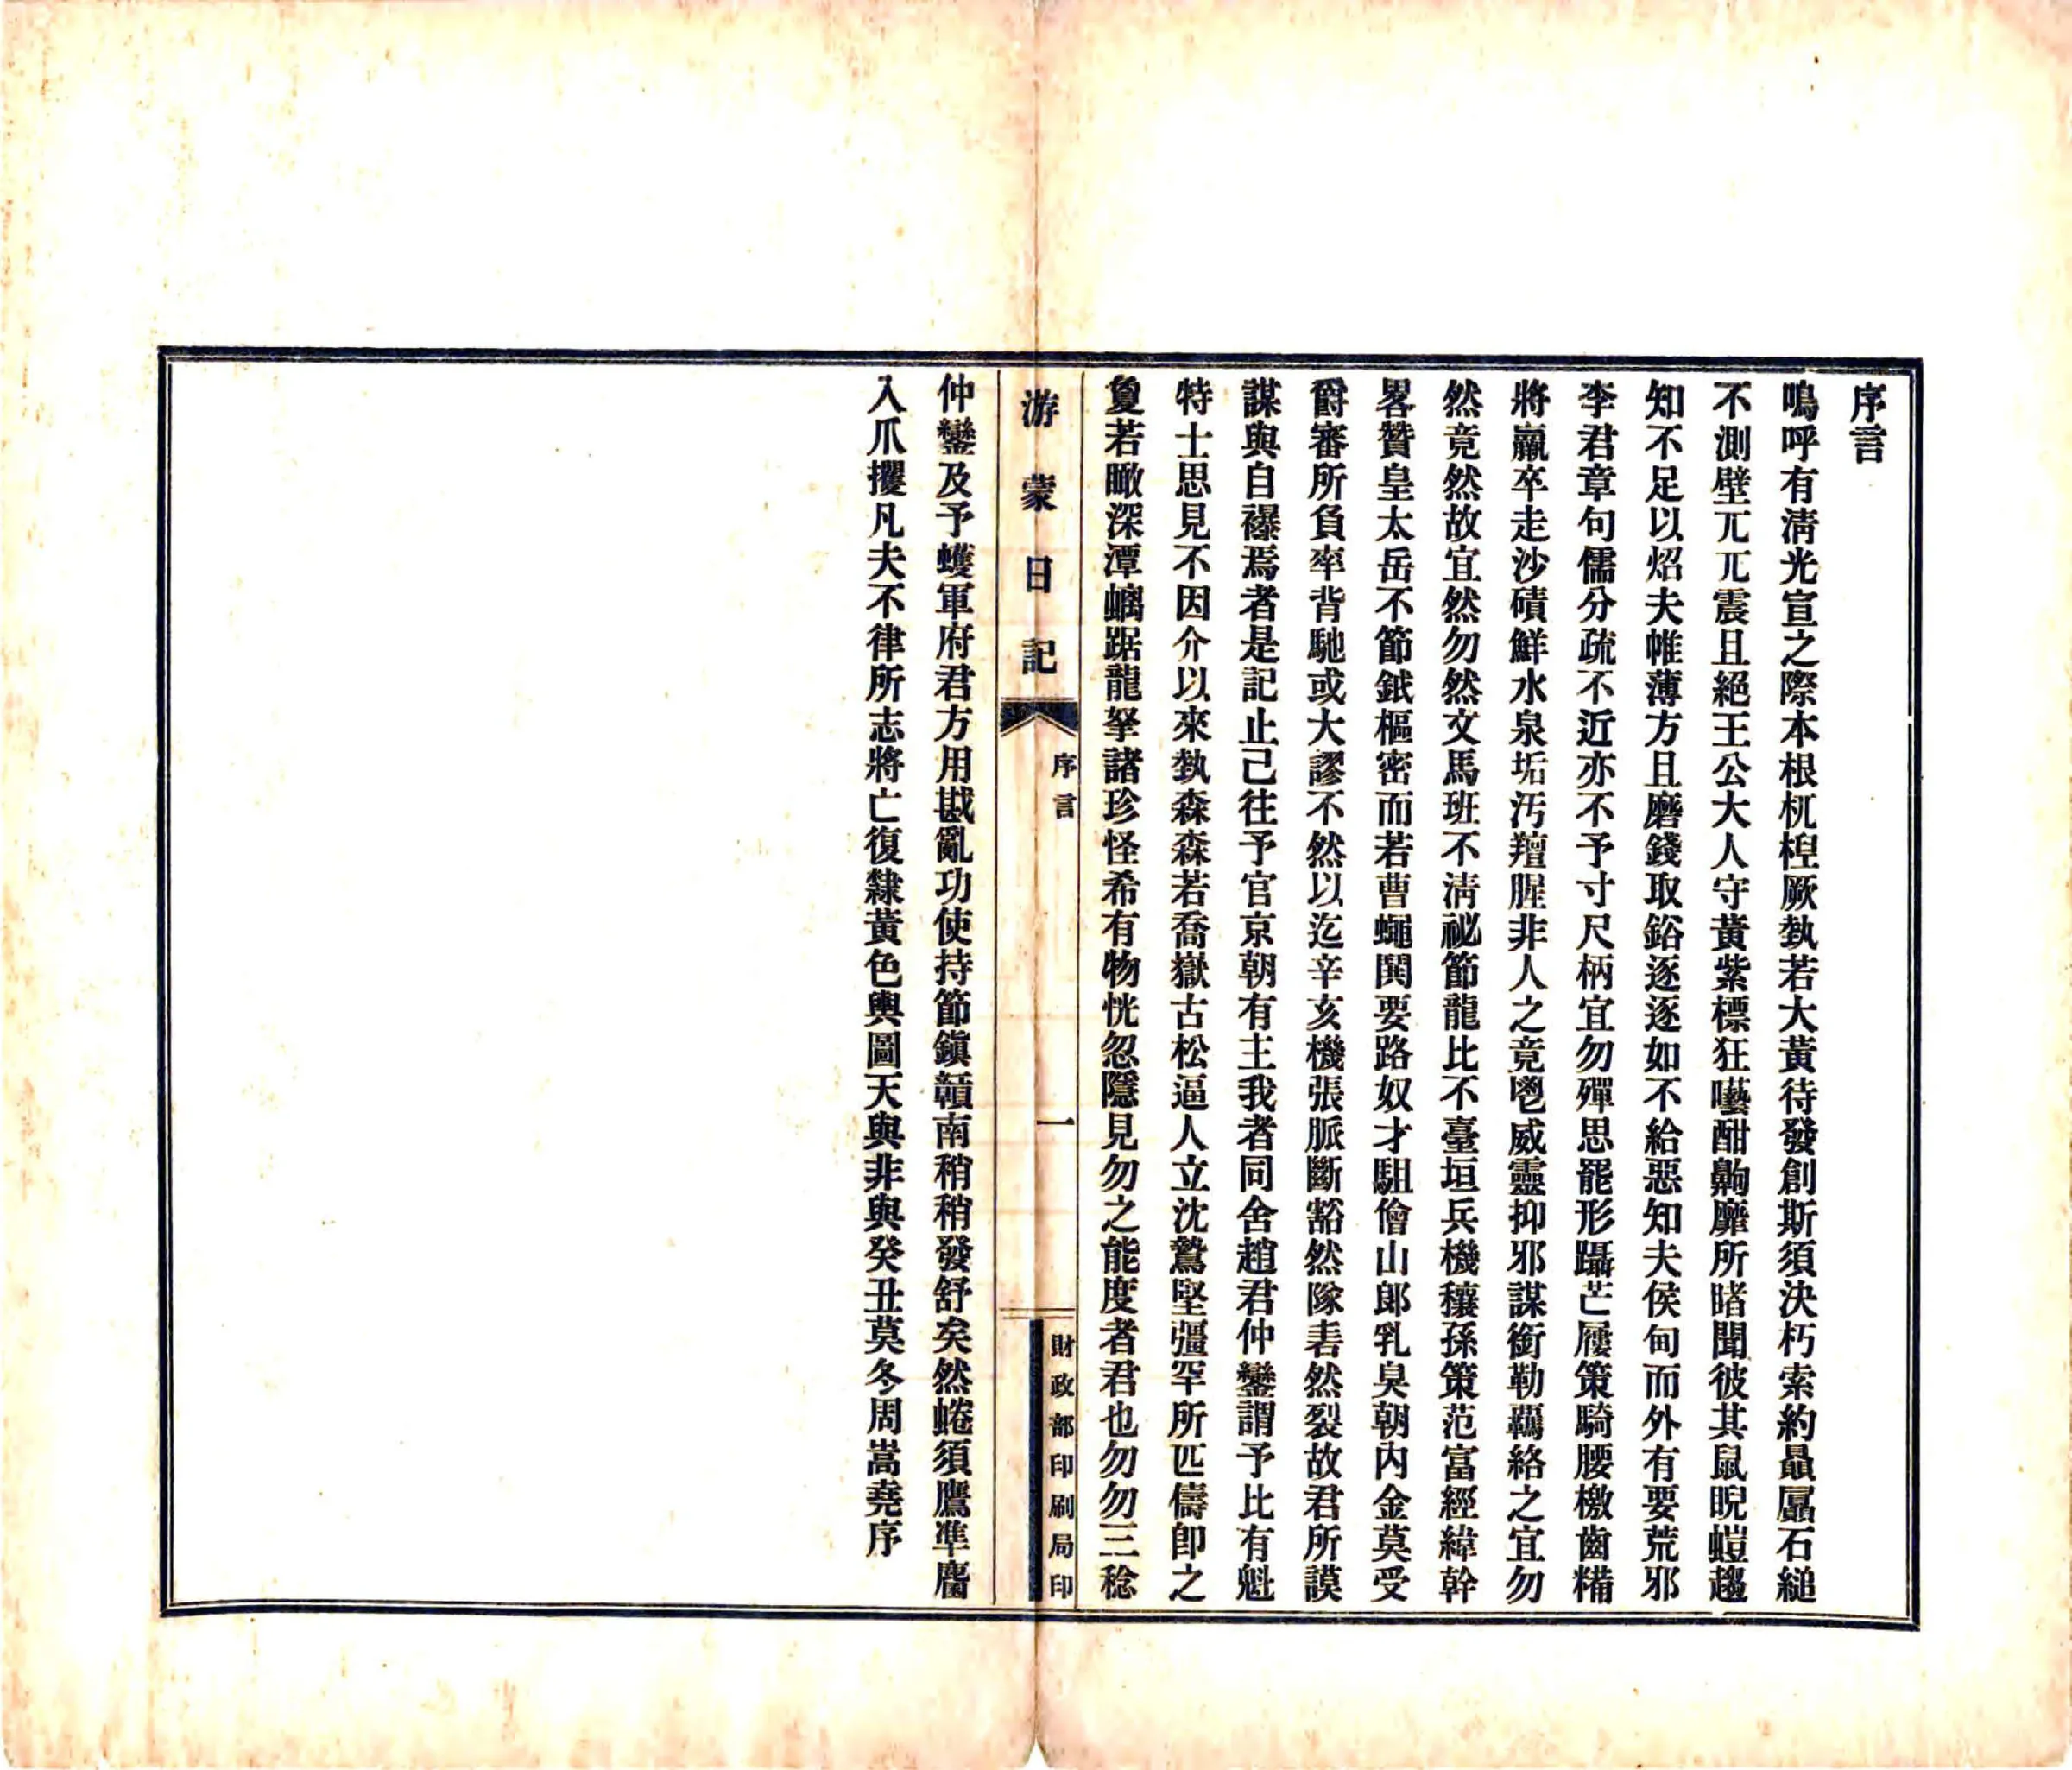 序言
嗚呼有淸光宣之際本根杌楻厥埶若大黃待發創斯須決朽索約贔屭石縋
不測壁兀兀震且絕王公大人守黃紫標狂囈酣齁靡所睹聞彼其鼠睨螘趨
知不足以炤夫帷薄方且磨錢取鋊逐逐如不給惡知夫侯甸而外有要荒邪
李君章句儒分疏不近亦不予寸尺柄宜勿殫思罷形躡芒屩策騎腰檄齒糒
將羸卒走沙磧鮮水泉垢汚羶腥非人之竟鬯威靈抑邪謀銜勒羈絡之宜勿
然竟然故宜然勿然文馬班不淸祕節龍比不臺垣兵機穰孫策范富經緯幹
畧贊皇太岳不節鉞樞密而若曹蠅閧要路奴才駔儈山郞乳臭朝內金莫受
爵審所負率背馳或大謬不然以迄辛亥機張脈斷豁然隊砉然裂故君所謨
謀與自襮焉者是記止己往予官京朝有主我者同舍趙君仲鑾謂予比有魁
特士思見不因介以來埶森森若喬嶽古松逼人立沈鷙堅彊罕所匹儔卽之
敻若瞰深潭螭踞龍拏諸珍怪希有物恍忽隱見勿之能度者君也勿勿三稔
游蒙日記
序言
一
財政部印刷局印
仲鑾及予蠖軍府君方用戡亂功使持節鎭贛南稍稍發舒矣然蜷須鷹準麕
入爪攫凡夫不律所志將亡復隸黃色輿圖天與非與癸丑莫冬周嵩堯序